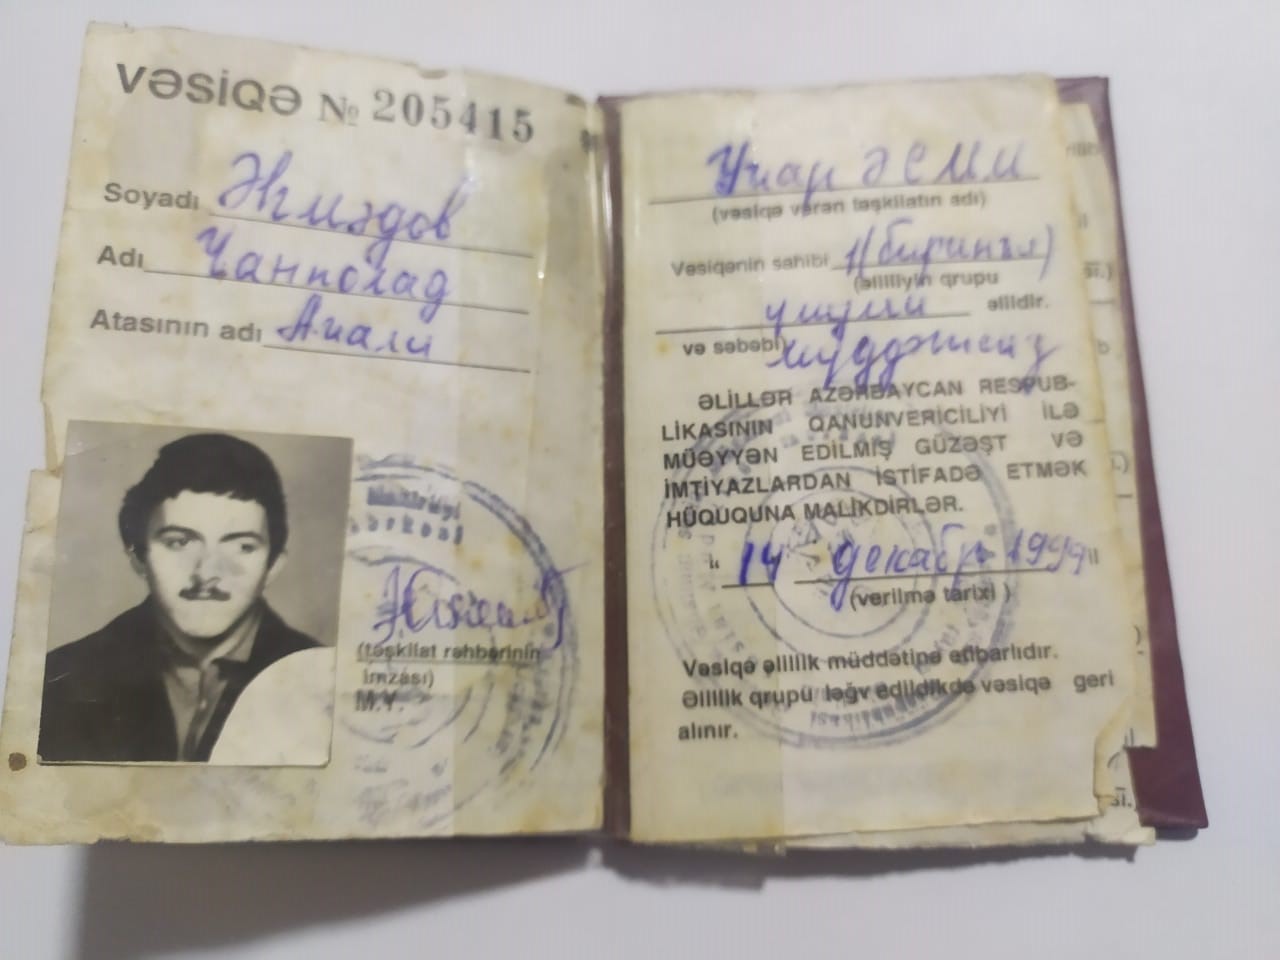 VƏSİQƏ № 205415
Soyadı Әһмәдов
Adı Ҹанполад
Atasının adı
(təşkilat rəhbərinin
imzası)
M.Y.
Учар ӘСМИ
(vəsiqə verən təşkilatın adı)
Vəsiqənin sahibi 1(биринҹи)
(əlilliyin qrupu
əlildir.
və səbəbi)
ƏLİLLƏR AZƏRBAYCAN RESPUB-
LİKASININ QANUNVERİCİLİYİ İLƏ
MÜƏYYƏN EDİLMİŞ GÜZƏŞT VƏ
İMTİYAZLARDAN İSTİFADƏ ETMƏK
HÜQUQUNA MALİKDİRLƏR.
" 14 декабр 1999"
(verilmə tarixi )
Vəsiqə əlillik müddətinə etibarlıdır.
Əlillik qrupu ləğv edildikdə vəsiqə geri
alınır.